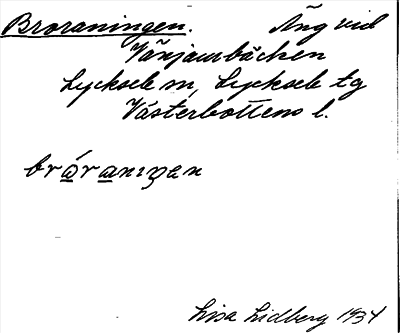 Broraningen. Äng vid
Vänjaurbäcken
Lycksele sn, Lycksele tg
Västerbottens l.
bråraniŋen
Lisa Lidberg 1934